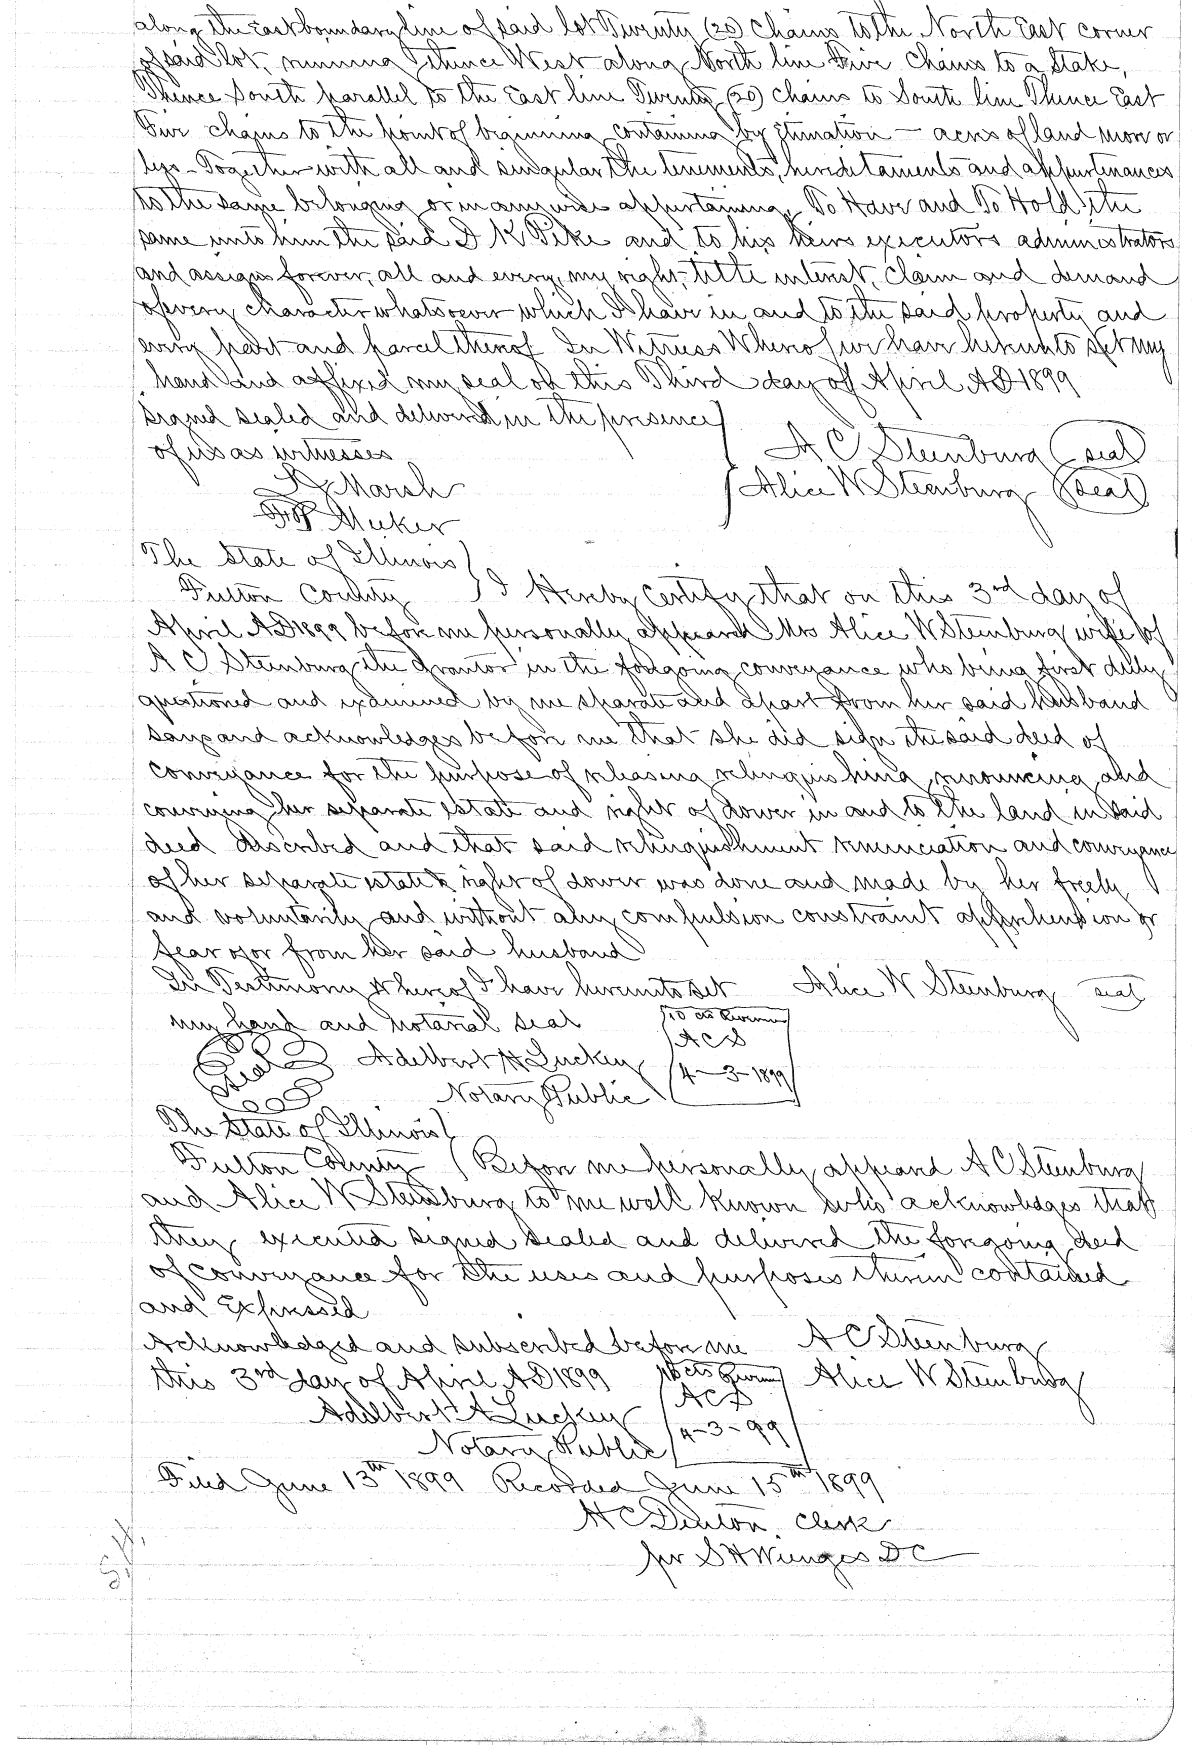 along the East boundary line of said lot Twenty (20) Chains to the North East corner
of said lot, running thence West along North line Five Chains to a stake,
Thence South parallel to the East line Twenty (20) chains to South line Thence East
Five chains to the point of beginning containing by Estimation — acres of land more or
less - Together with all and singular the tenements, hereditaments and appurtenances
to the same belonging or in any wise appertaining, To Have and To Hold the
same unto him the said I K Pike and to his heirs executors administrators
and assigns forever, all and every, my right, title interest, claim and demand
of every character whatsoever which I have in and to the said property and
every part and parcel thereof In Witness Whereof we have hereunto set my
hand and affixed my seal on this Third day of April AD 1899
signed sealed and delivered in the presence
of us as witnesses
A C Steenburg (seal)
Marsh
Alice W Steenburg (seal)
Meeker
The State of Illinois
Fulton County I Hereby certify that on this 3rd day of
April AD 1899 before me personally appeared Mrs Alice W Steenburg wife of
A C Steenburg the grantor in the foregoing conveyance who being first duly
questioned and examined by me separate and apart from her said husband
says and acknowledges before me that she did sign the said deed of
conveyance for the purpose of releasing relinquishing renouncing and
conveying her separate estate and right of dower in and to the land in said
deed described and that said relinquishment renunciation and conveyance
of her separate estate & right of dower was done and made by her freely
and voluntarily and without any compulsion constraint apprehension or
fear of or from her said husband
In Testimony Whereof I have hereunto set Alice W Steenburg seal
my hand and notarial seal
10 cts Revenue
A C S
4-3-1899
Seal Adelbert A Luckey
Notary Public
The State of Illinois
Fulton County Before me personally appeared A C Steenburg
and Alice W Steenburg to me well known who acknowledges that
they executed signed sealed and delivered the foregoing deed
of conveyance for the uses and purposes therein contained
and Expressed
Acknowledged and subscribed before me A C Steenburg
this 3rd day of April AD 1899 Alice W Steenburg
cts Revenue
A C S
4-3-99
Adelbert A Luckey
Notary Public
Filed June 13th 1899 Recorded June 15th 1899
H C Denton, Clerk
per S H Wienges D C